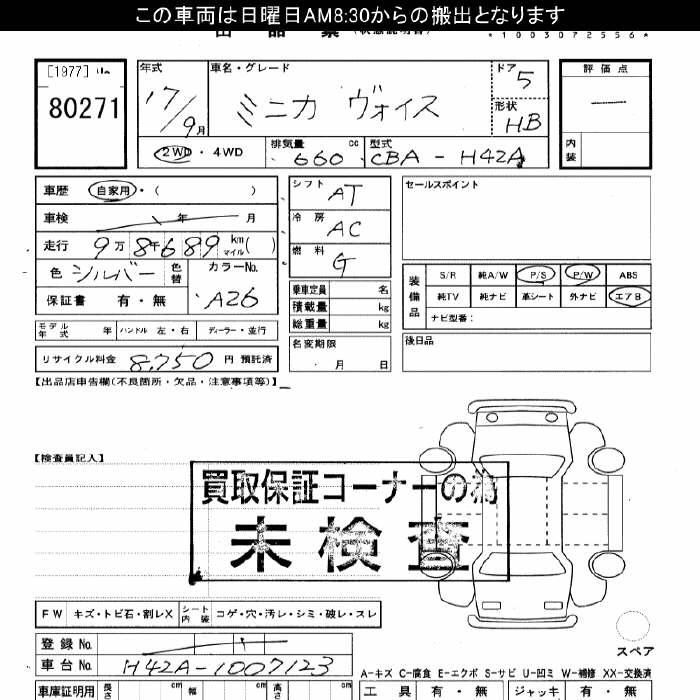 この車両は日曜日AM8:30からの搬出となります
*1003072556*
[1977]
80271
年式 車名・グレード ドア 5 評価点
17/9月 ミニカ ヴォイス 形状 HB
内装
2WD ・ 4WD 排気量 660 cc 型式 CBA - H42A
車歴 自家用・( )
車検 年 月
走行 9万8千689 km マイル( )
色 シルバー 色替 カラーNo. A26
保証書 有・無
シフト AT
冷房 AC
燃料 G
乗車定員 名
積載量 kg
総重量 kg
セールスポイント
装備品 S/R 純A/W P/S P/W ABS
純TV 純ナビ 革シート 外ナビ エアB
ナビ型番：
モデル年式 年 ハンドル 左・右 ディーラー・並行
名変期限 月 日
後日品
リサイクル料金 8,750 円 預託済
【出品店申告欄(不良箇所・欠品・注意事項等)】
【検査員記入】
買取保証コーナーの為
未検査
FW キズ・トビ石・割レX シート内装 コゲ・穴・汚レ・シミ・破レ・スレ
スペア
登録No.
車台No. H42A-1007123
A-キズ C-腐食 E-エクボ S-サビ U-凹ミ W-補修 XX-交換済
車庫証明用 長さ cm 幅 cm 高さ cm 工具 有・無 ジャッキ 有・無